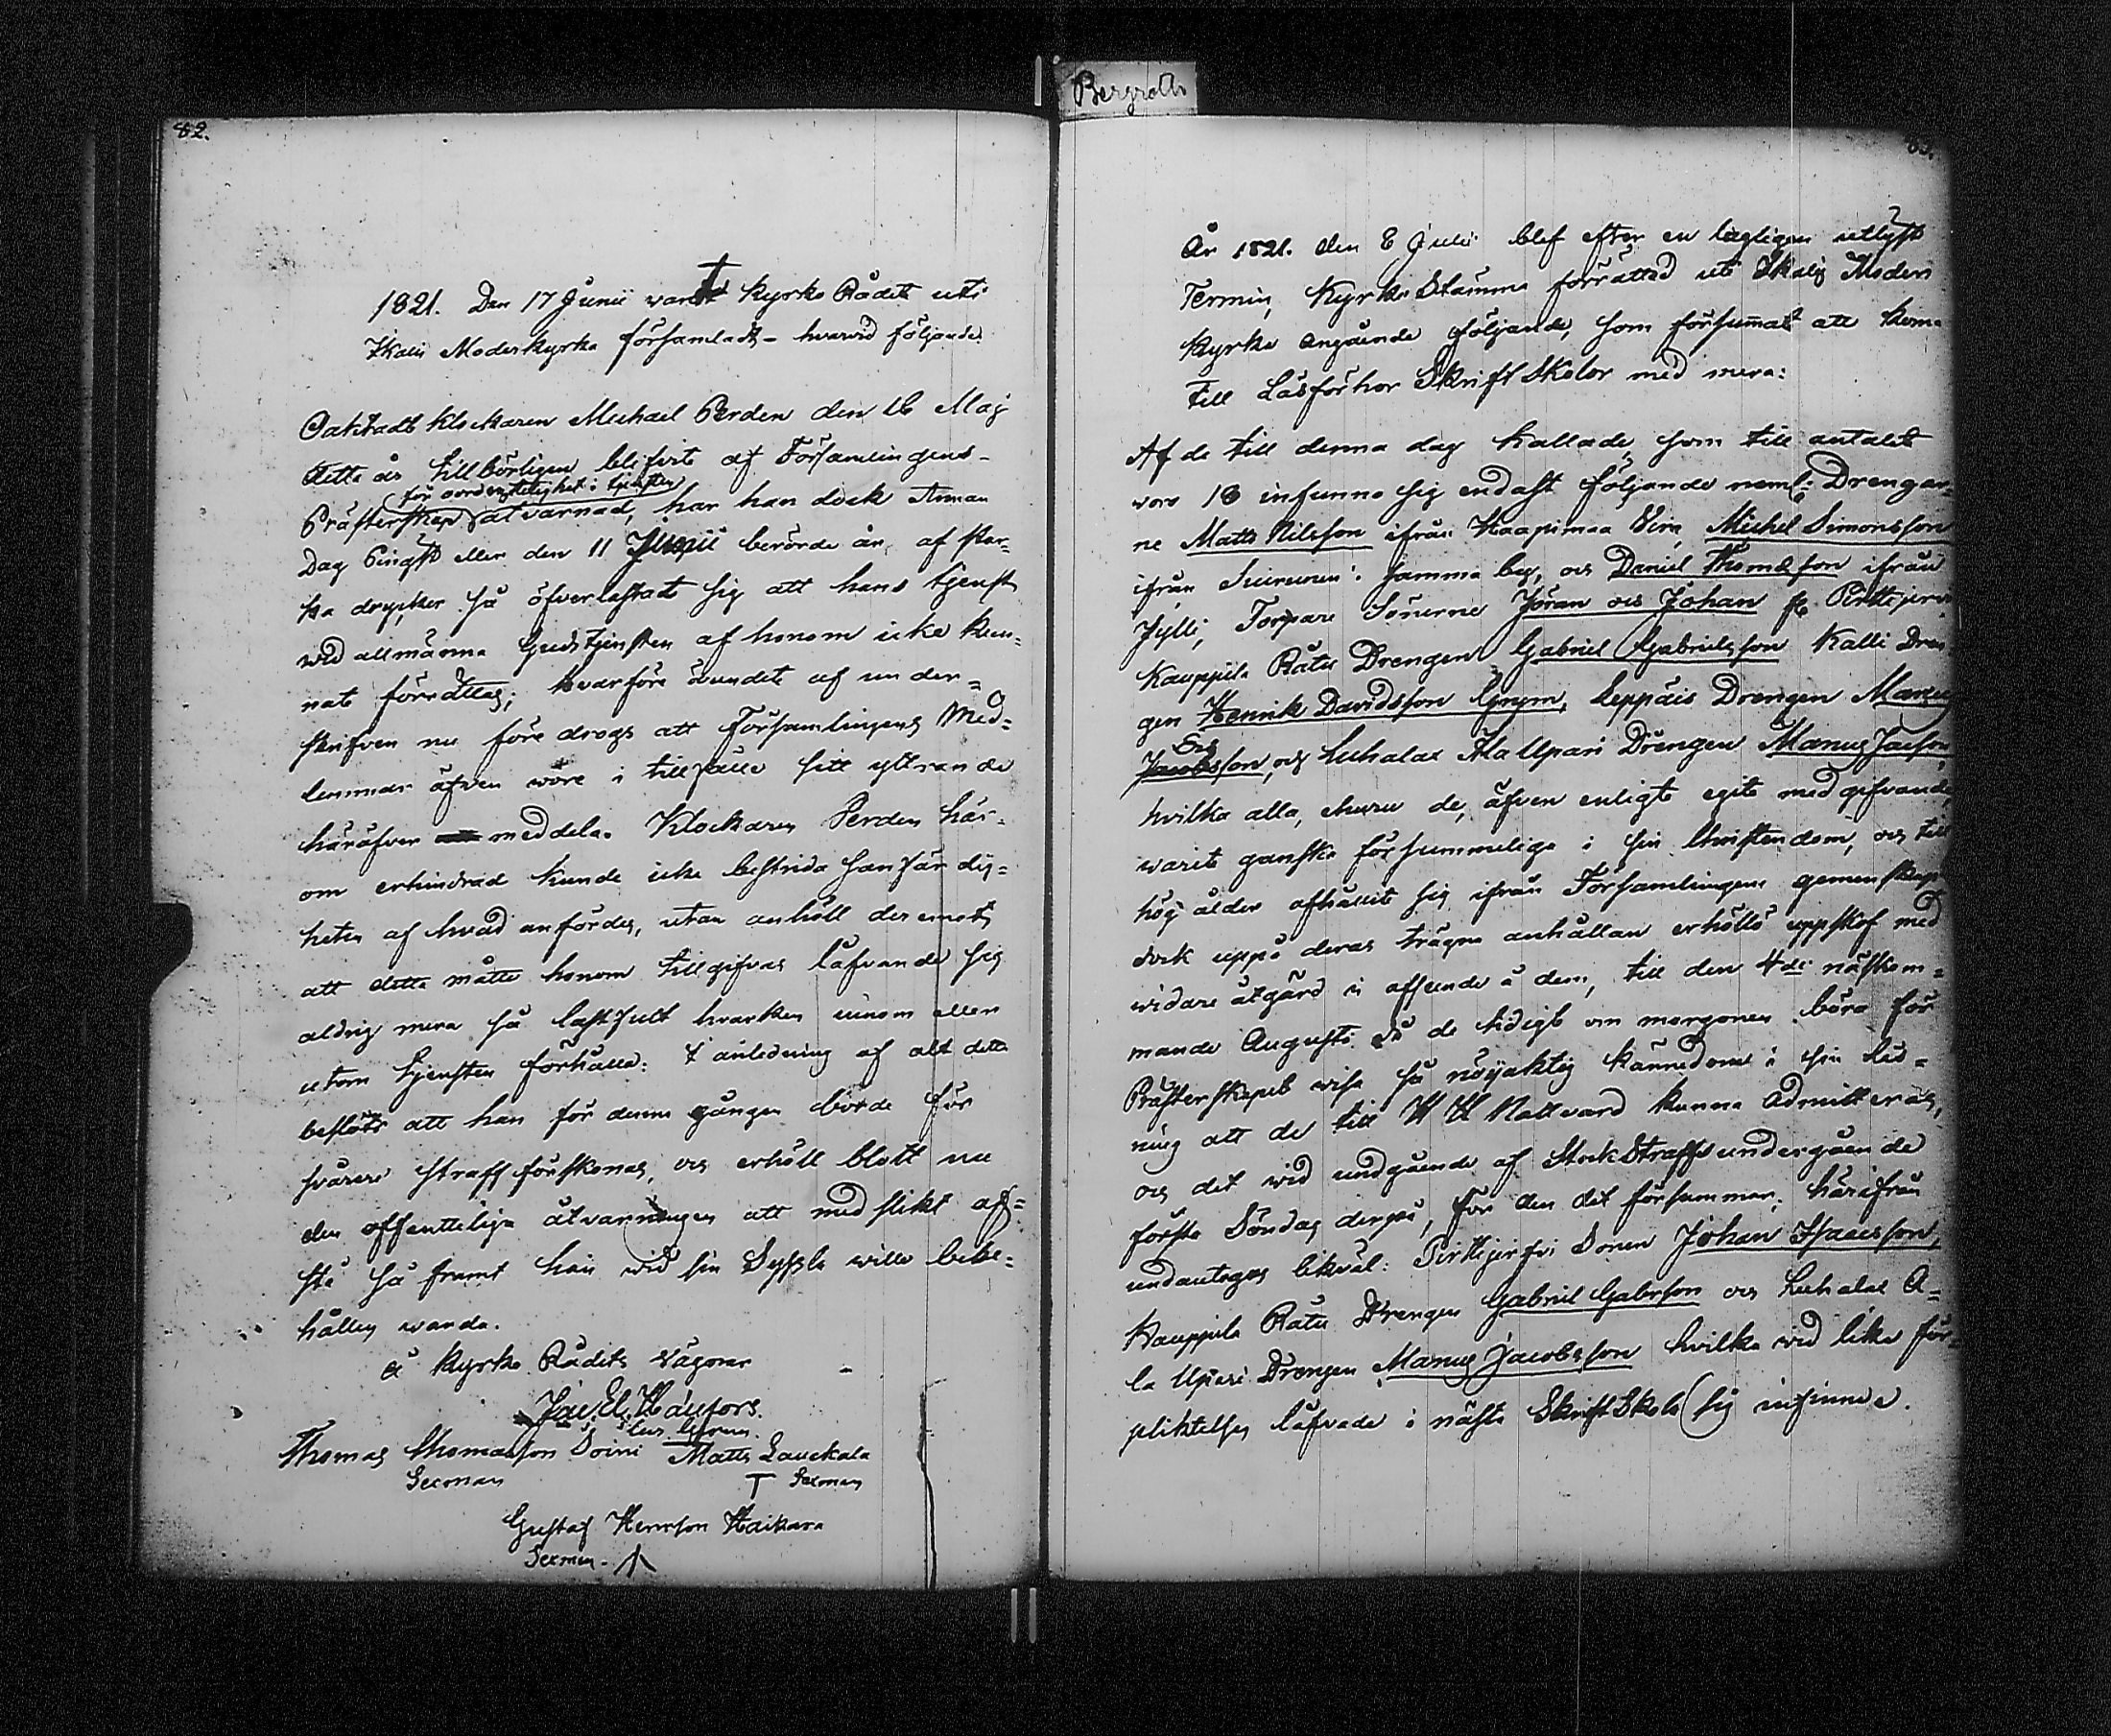 Bergroth
82.
1821. Den 17 Junii wardt Kyrko Rådet uti
Ikalis Moderkyrka församladt – hwarvid följande
Oaktadt Klockaren Michael Perden den 16 Maj
detta år tillbörligen blifvit af Församlingens
för oordentelighet i tjensten
Prästerskap åtvarnad, har han dock Annan
Dag Pingst eller den 11 Junii berörde år, af star-
ka drycker så öfverlastat sig att hans tjenst
wid allmänna Gudstjensten af honom icke kun-
nat förrättas; hvarföre ärendet af under-
skrifven nu före drogs att Församlingens Med-
lemmar äfven wore i tillfälle sitt yttrande
häröfver meddela. Klockaren Perden här-
om erhindrad kunde icke bestrida sanfärdig-
heten af hvad anfördes, utan anhöll deremot
att detta måtte honom tillgifvas låfvande sig
aldrig mera så lastfult hvarken innom eller
utom tjensten förhålla: I anledning af alt detta
beslöts att han för denna gången borde för
svårare straff förskonas, och erhöll blott nu
den offentteliga åtvarningen att med slikt af-
stå så framt han wid sin Syssla wille bibe-
hållen warda.
å Kyrko Rådets vägnar
Thomas Thomasson Soini Matts Lauckala
Sexman T Sexman
Gustaf Henrson Haikara
Sexman
83.
År 1821. den 8 Julii blef efter en lagligen utlyst
Termin, KyrkoStämma förrättad uti Ikalis Moder
Kyrka angående följande, som försummat att komma
till Läsförhör SkriftSkolor med mera:
Af de till denna dag kallade, som till antalet
woro 18 infunno sig endast följande neml: Drengar-
ne Matts Nilsson ifrån Haapimaa Eira, Michel Simonsson
ifrån samma by, och Daniel Thomæson ifrån
Jylli, Torpare Sönerne Jöran och Johan fr. Pirttijervi
Kauppila Rätu Drengen Gabriel Gabrielsson Kalli Dren
gen Henrik Davidsson Grym, Leppäis Drengen Manus
Jacobsson, och Luhalax Ala Upari Drengen Manus Jacson,
hvilka alla, ehuru de, äfven enligt egit medgifvande,
warit ganska försummelige i sin Christendom, och till
hög ålder afhållit sig ifrån Församlingens gemenskap
dock uppå deras trägne anhållan erhöllo uppskof med
widare åtgärd i afseende å dem, till den 4de nästkom-
mande Augusti då de tidigt om morgonen böra för
Prästerskapet wisa så nöyaktig kännedom i sin Läs-
ning att de till H H Nattvard kunna Admitteras,
och det wid undgående af StockStraffs undergående
första Söndag derpå, för den det försummar; härifrån
undantages likväl: Pirttijerfvi Sonen Johan Isacsson,
Kauppila Rätu Drengen Gabriel Gabrson och Luhalax A-
la Upari Drengen Manus Jacobsson hvilka wid lika för-
pliktelse låfvade i nästa SkriftSkola sig infinna.